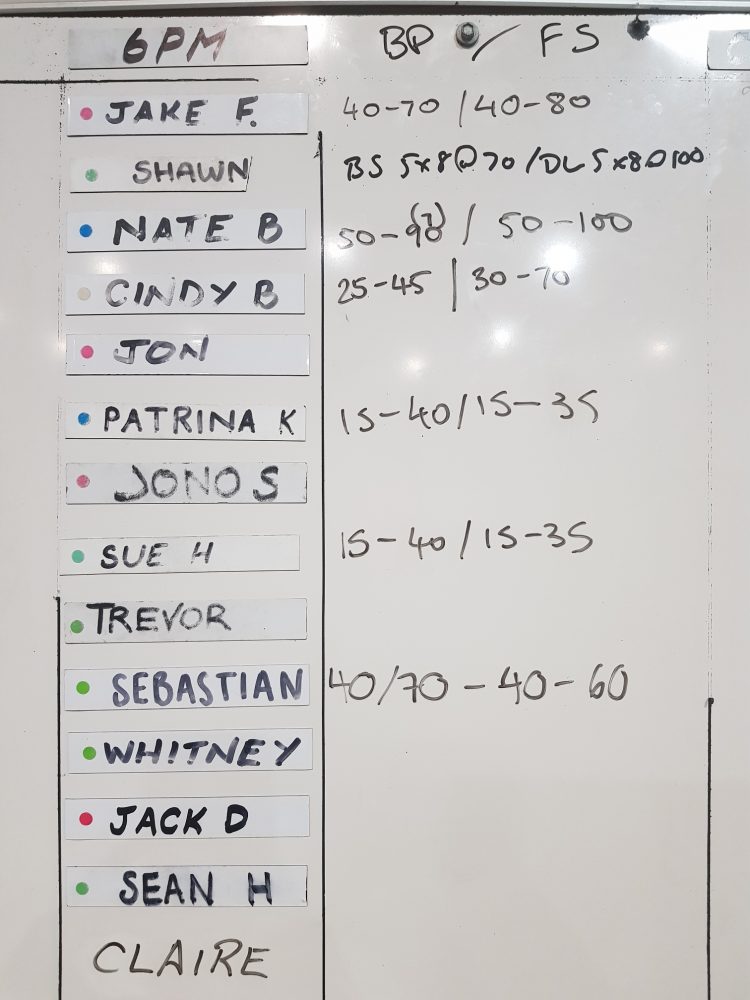 6PM BP / FS
JAKE F. 40-70 / 40-80
SHAWN BS 5x8@70 / DL 5x8@100
NATE B 50-90 (7) / 50-100
CINDY B 25-45 | 30-70
JON
PATRINA K 15-40/15-35
JONO S
SUE H 15-40 / 15-35
TREVOR
SEBASTIAN 40/70 - 40-60
WHITNEY
JACK D
SEAN H
CLAIRE